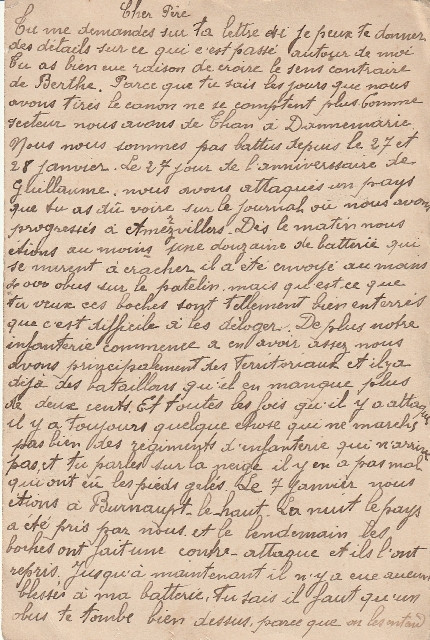 Cher Père
Tu me demandes sur ta lettre si je peux te donner
des détails sur ce qui c'est passé autour de moi
Tu as bien eue raison de croire le sens contraire
de Berthe. Parce que tu sais les jours que nous
avons tirés le canon ne se comptent plus comme
secteur nous avons de Than à Dannemarie.
Nous nous sommes pas battus depuis le 27 et
28 janvier. Le 27 jour de l'anniverssaire de
Guillaume. nous avons attaqués un pays
que tu as dû voire sur le journal où nous avons
progressés à Amerzvillers. Dès le matin nous
étions au moins une douzaine de batterie qui
se mirent à cracher il a été envoyé au moins
obus sur le patelin, mais qu'est ce que
tu veux ces boches sont tellement bien enterrés
que c'est difficile à les déloger. De plus notre
infanterie commence a en avoir assez nous
avons principalement des Territoriaux et il y a
déjà des bataillons qu'il en manque plus
de deux cents. Et toutes les fois qu'il y a attaque
il y a toujours quelque chose qui ne marche
pas bien des régiments d'infanterie qui n'arrive
pas, et tu parles sur la neige il y en a pas mal
qui ont eu les pieds gelés. Le 7 janvier nous
étions à Burnaupt-le-haut. La nuit le pays
a été pris par nous et le lendemain les
boches ont fait une contre-attaque et ils l'ont
repris. Jusqu'à maintenant il n'y a eue aucun
blessés à ma batterie, tu sais il faut qu'un
obus te tombe bien dessus, parce que on les entend